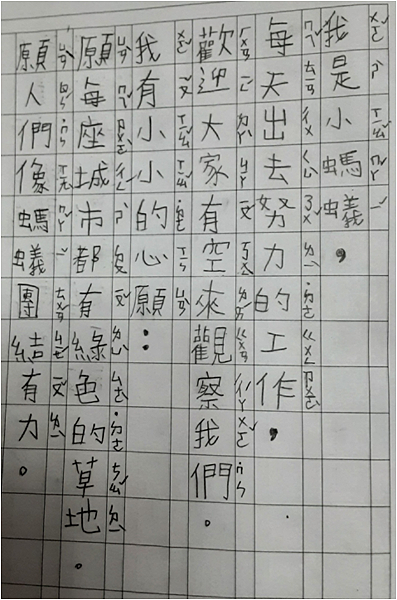 我是小螞蟻，
每天出去努力的工作，
歡迎大家有空來觀察我們。
我有小小的心願：
願每座城市都有綠色的草地。
願人們像螞蟻團結有力。